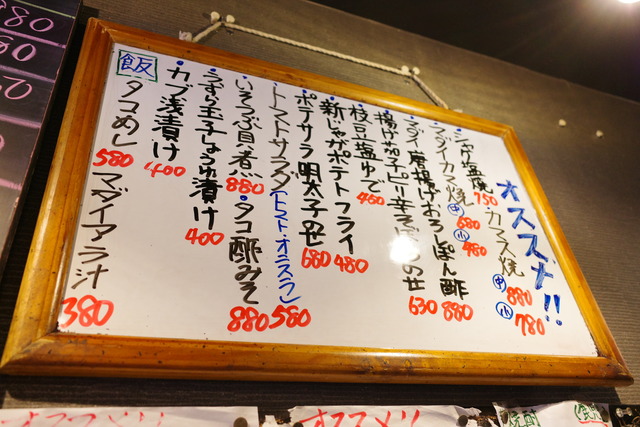 オススメ!!
・シャケ塩焼 750 ・カマス焼 中 880 小 780
・マダイカマ焼 中 680 小 480
・マダイ唐揚げおろしぽん酢 880
・揚げ茄子ピリ辛そぼろのせ 630
・枝豆塩ゆで 460
・新じゃがポテトフライ 480
・ポテサラ明太子のせ 680
・トマトサラダ[トマト・オニスラ] 580
・いそつぶ貝煮 880 ・タコ酢みそ 880
・うずら玉子しょうゆ漬け 400
・カブ浅漬け 400
飯
・タコめし 580 マダイアラ汁 380
880
オススメ
オススメ
焼酎